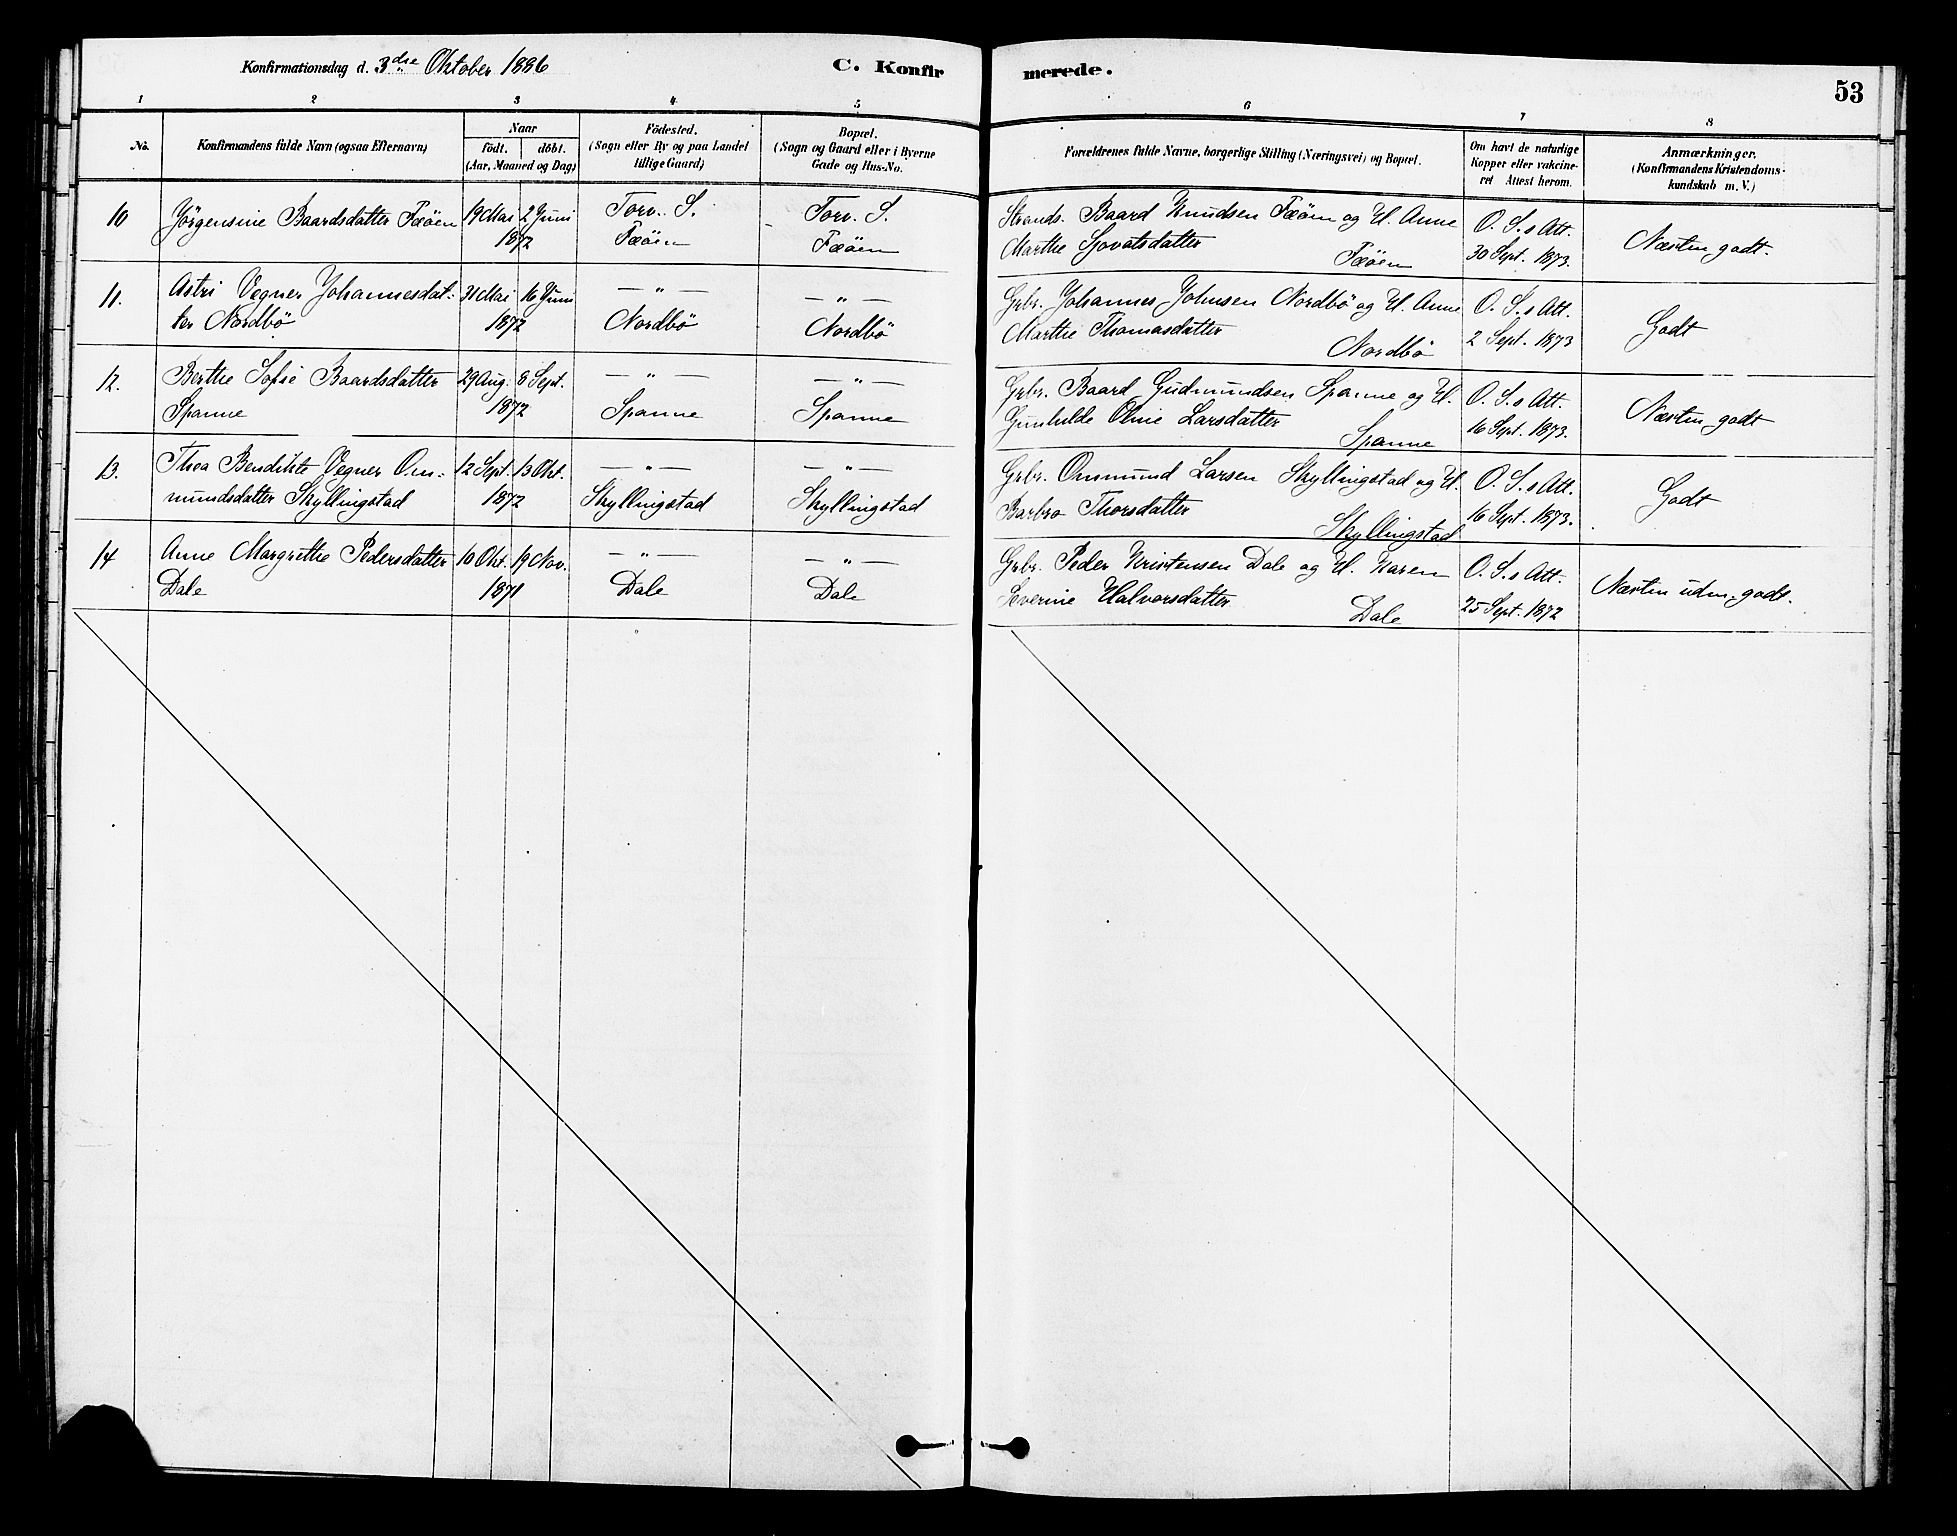 Konfirmationsdag d. 3die Oktober 1886
C. Konfirmerede.
53
1 2 3 4 5 6 7 8
No.
Konfirmandens fulde Navn (ogsaa Efternavn)
Naar
födt. döbt.
(Aar, Maaned og Dag)
Födested.
(Sogn eller By og paa Landet
tillige Gaard)
Bopæl.
(Sogn og Gaard eller i Byerne
Gade og Hus-No.
Forældrenes fulde Navne, borgerlige Stilling (Næringsvei) og Bopæl.
Om havt de naturlige
Kopper eller vakcine-
ret Attest herom.
Anmærkninger.
(Konfirmandens Kristendoms-
kundskab m. V.)
10 Jörgensine Baardsdatter Fæöen 19 Mai 2 Juni Torv. S. Torv. S. Strands. Baard Knudsen Fæöen og H. Anne O. S.s Att.
1872 Fæöen Fæöen Marthe Sjovatsdatter Fæöen 30 Sept. 1873. Næsten godt.
11. Astri Vegner Johannesdat- 31 Mai 16 Juni — " — — " — Grbr. Johannes Johnsen Nordbö og H. Anne O. S.s Att.
ter Nordbö 1872 Nordbö Nordbö Marthe Thomasdatter Nordbö 2 Sept. 1873 Godt
12. Berthe Sofie Baardsdatter 29 Aug. 8 Sept. — " — — " — Grbr. Baard Gudmundsen Spanne og H. O. S.s Att.
Spanne 1872 Spanne Spanne Gunhilde Oline Larsdatter Spanne 16 Sept. 1873. Næsten godt
13. Thea Bendikte Vegner Om- 12 Sept. 13 Okt. — " — — " — Grbr. Ommund Larsen Skyllingstad og H. O. S.s Att.
mundsdatter Skyllingstad 1872 Skyllingstad Skyllingstad Barbro Thorsdatter Skyllingstad 16 Sept. 1873. Godt
14 Anne Margrethe Pedersdatter 10 Okt. 19 Nov. — " — — " — Grbr. Peder Kristensen Dale og H. Karen O. S.s Att.
Dale 1871 Dale Dale Severine Halvorsdatter Dale 25 Sept. 1872 Næsten udm. godt.